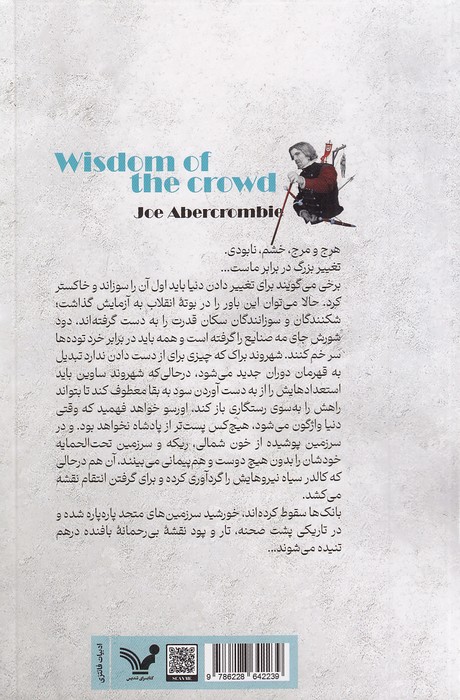 Wisdom of
the crowd
Joe Abercrombie
هرج و مرج، خشم، نابودی.
تغییر بزرگ در برابر ماست...
برخی می‌گویند برای تغییر دادن دنیا باید اول آن را سوزاند و خاکستر
کرد. حالا می‌توان این باور را در بوتهٔ انقلاب به آزمایش گذاشت؛
شکنندگان و سوزانندگان سکان قدرت را به دست گرفته‌اند، دود
شورش جای مه صنایع را گرفته است و همه باید در برابر خرد توده‌ها
سر خم کنند. شهروند براک که چیزی برای از دست دادن ندارد تبدیل
به قهرمان دوران جدید می‌شود، درحالی‌که شهروند ساوین باید
استعدادهایش را از به دست آوردن سود به بقا معطوف کند تا بتواند
راهش را به‌سوی رستگاری باز کند. اورسو خواهد فهمید که وقتی
دنیا واژگون می‌شود، هیچ‌کس پست‌تر از پادشاه نخواهد بود. و در
سرزمین پوشیده از خون شمالی، ریکه و سرزمین تحت‌الحمایه
خودشان را بدون هیچ دوست و هم‌پیمانی می‌بینند. آن هم درحالی
که کالدر سیاه نیروهایش را گردآوری کرده و برای گرفتن انتقام نقشه
می‌کشد.
بانک‌ها سقوط کرده‌اند، خورشید سرزمین‌های متحد پاره‌پاره شده و
در تاریکی پشت صحنه، تار و پود نقشهٔ بی‌رحمانهٔ بافنده درهم
تنیده می‌شوند...
ادبیات فانتزی
کتابسرای تندیس
SCAN ME
9 786228 642239